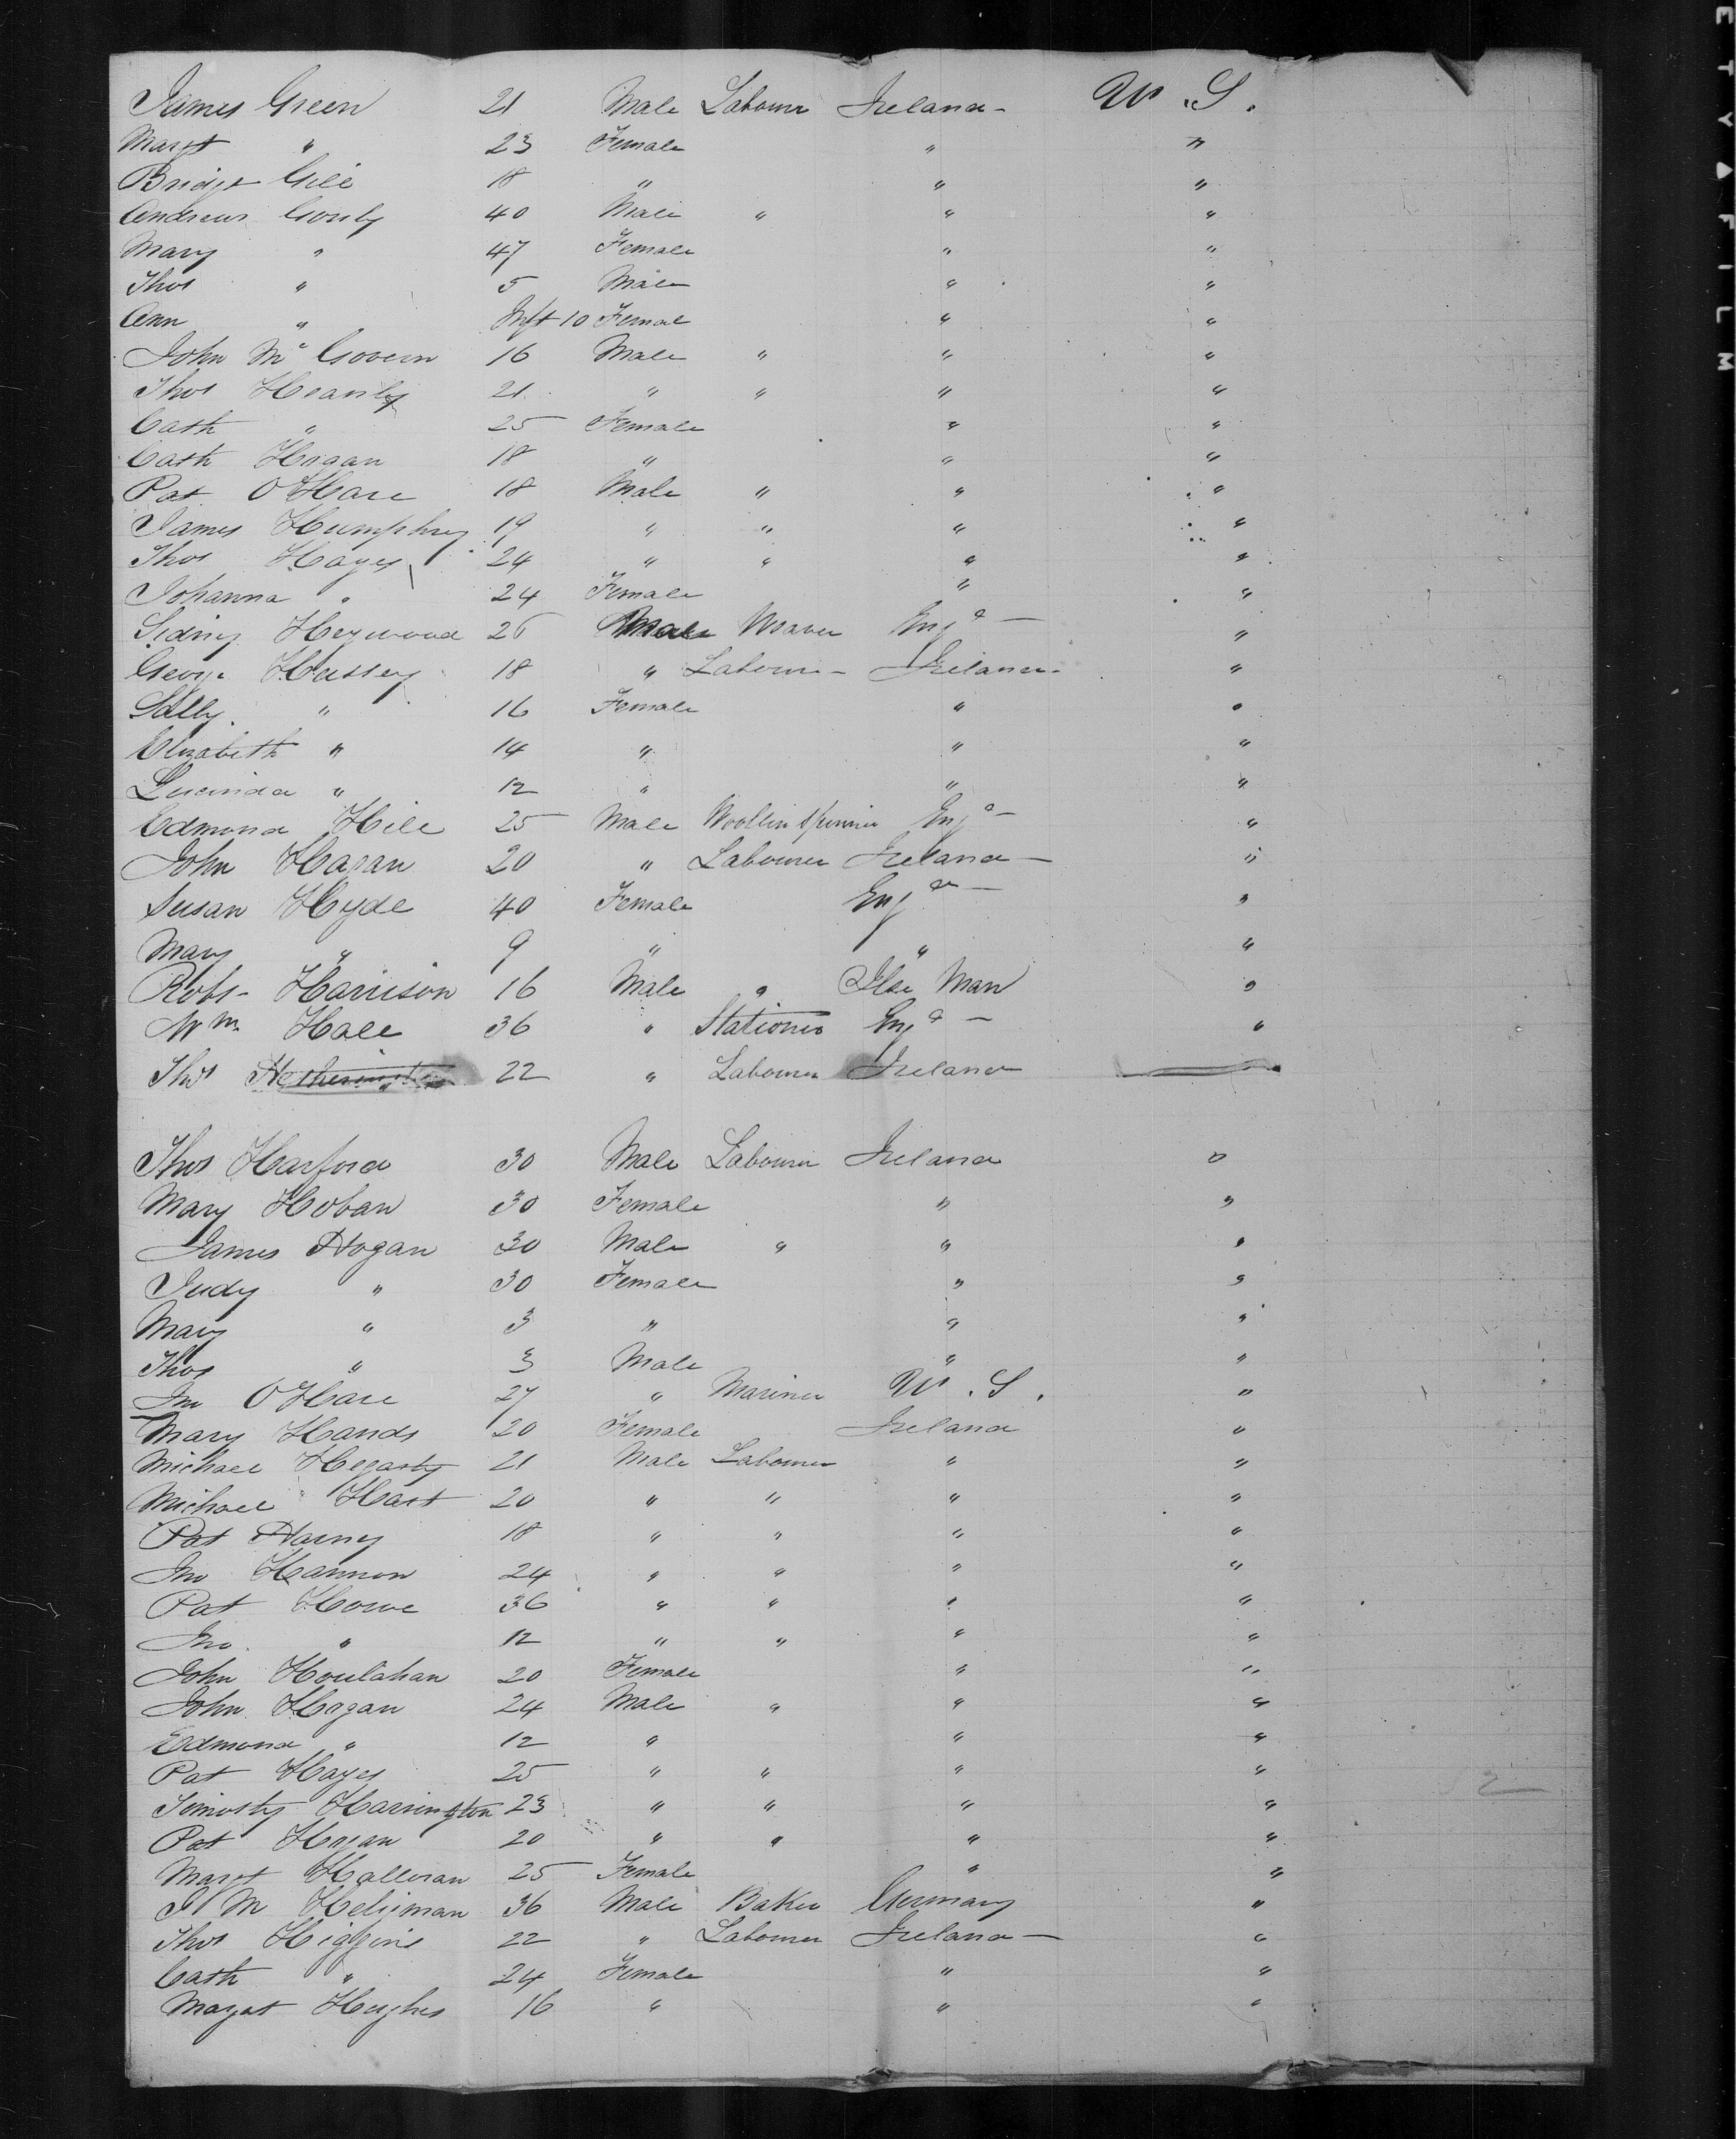 James Green 21 Male Labourer Ireland - U. S.
Margt " 23 Female " "
Bridgt Gill 18 " " "
Andrew Gouly 40 Male " " "
Mary " 47 Female " "
Thos " 5 Male " "
Ann " Inft 10 Female " "
John McGovern 16 Male " " "
Thos Heanly 21 " " " "
Cath " 25 Female " "
Cath Hogan 18 " " "
Pat O'Hare 18 Male " " "
James Humphrey 19 " " " "
Thos Hayes 24 " " " "
Johanna " 24 Female " "
Sidney Heywood 26 Male Weaver Engd - "
George Hussey 18 " Labourer - Ireland - "
Sally " 16 Female " "
Elizabeth " 14 " " "
Lucinda " 12 " " "
Edmond Hill 25 Male Woollen Spinner Engd - "
John Hagan 20 " Labourer Ireland - "
Susan Hyde 40 Female Engd - "
Mary " 9 " " "
Robt - Harrison 16 Male " Isle Man "
Wm Hall 36 " Stationer Engd - "
Thos Hetherington 22 " Labourer Ireland
Thos Harford 30 Male Labourer Ireland "
Mary Hoban 30 Female " "
James Hogan 30 Male " " "
Judy " 30 Female " "
Mary " 3 " " "
Thos " 3 Male " "
Jno O'Hare 27 " Mariner U. S. "
Mary Hands 20 Female Ireland "
Michael Hegarty 21 Male Labourer " "
Michael Hart 20 " " " "
Pat Harny 18 " " " "
Jno Hannon 24 " " " "
Pat Howe 36 " " " "
Jno " 12 " " " "
John Houlahan 20 Female " "
John Hogan 24 Male " " "
Edmond " 12 " " "
Pat Hayes 25 " " " "
Timothy Harrington 23 " " " "
Pat Hogan 20 " " " "
Margt Halloran 25 Female " "
J M 36 Male Baker Germany "
Thos Higgins 22 " Labourer Ireland - "
Cath " 24 Female " "
Margat Hughes 16 " " "